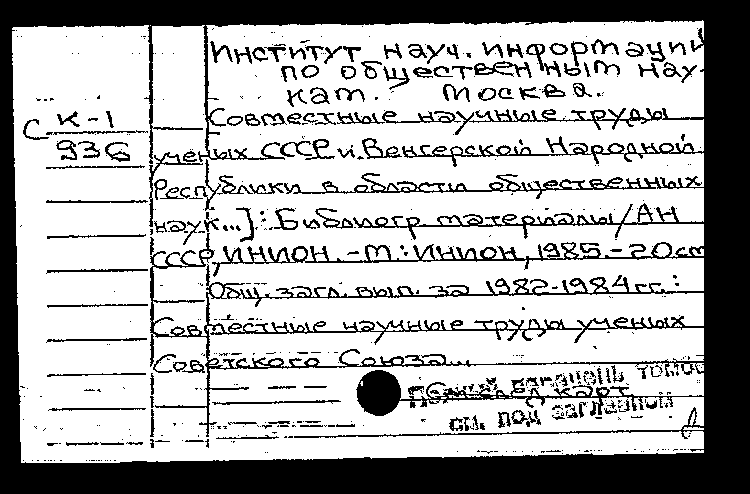 Институт науч. информации
по общественным нау-
кам. Москва.
С К-1
936
Совместные научные труды
ученых СССР и Венгерской Народной
Республики в области общественных
наук...]: Библиогр материалы/АН
СССР, ИНИОН. - М.: ИНИОН, 1985. - 20 cm
Общ. загл. вып. за 1982-1984 гг.:
Совместные научные труды ученых
Советского Союза...
Полный перечень томов
см. под заглавной